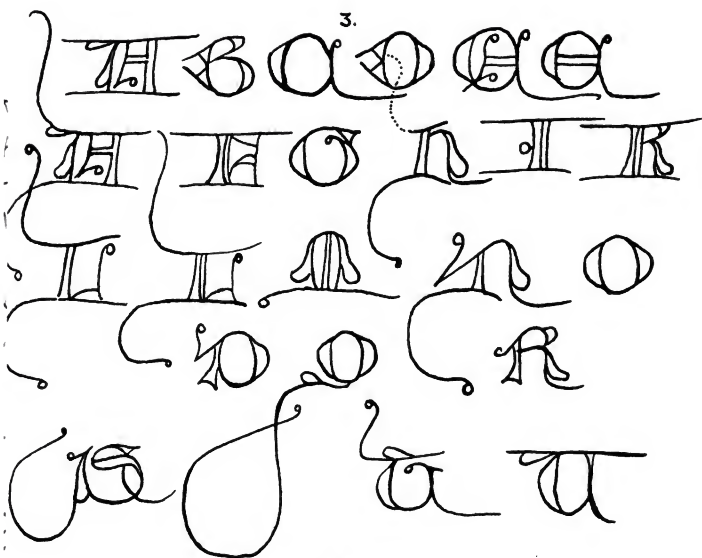 3.
A B C D E E
A F G H I K
L L M N O
P Q R
S